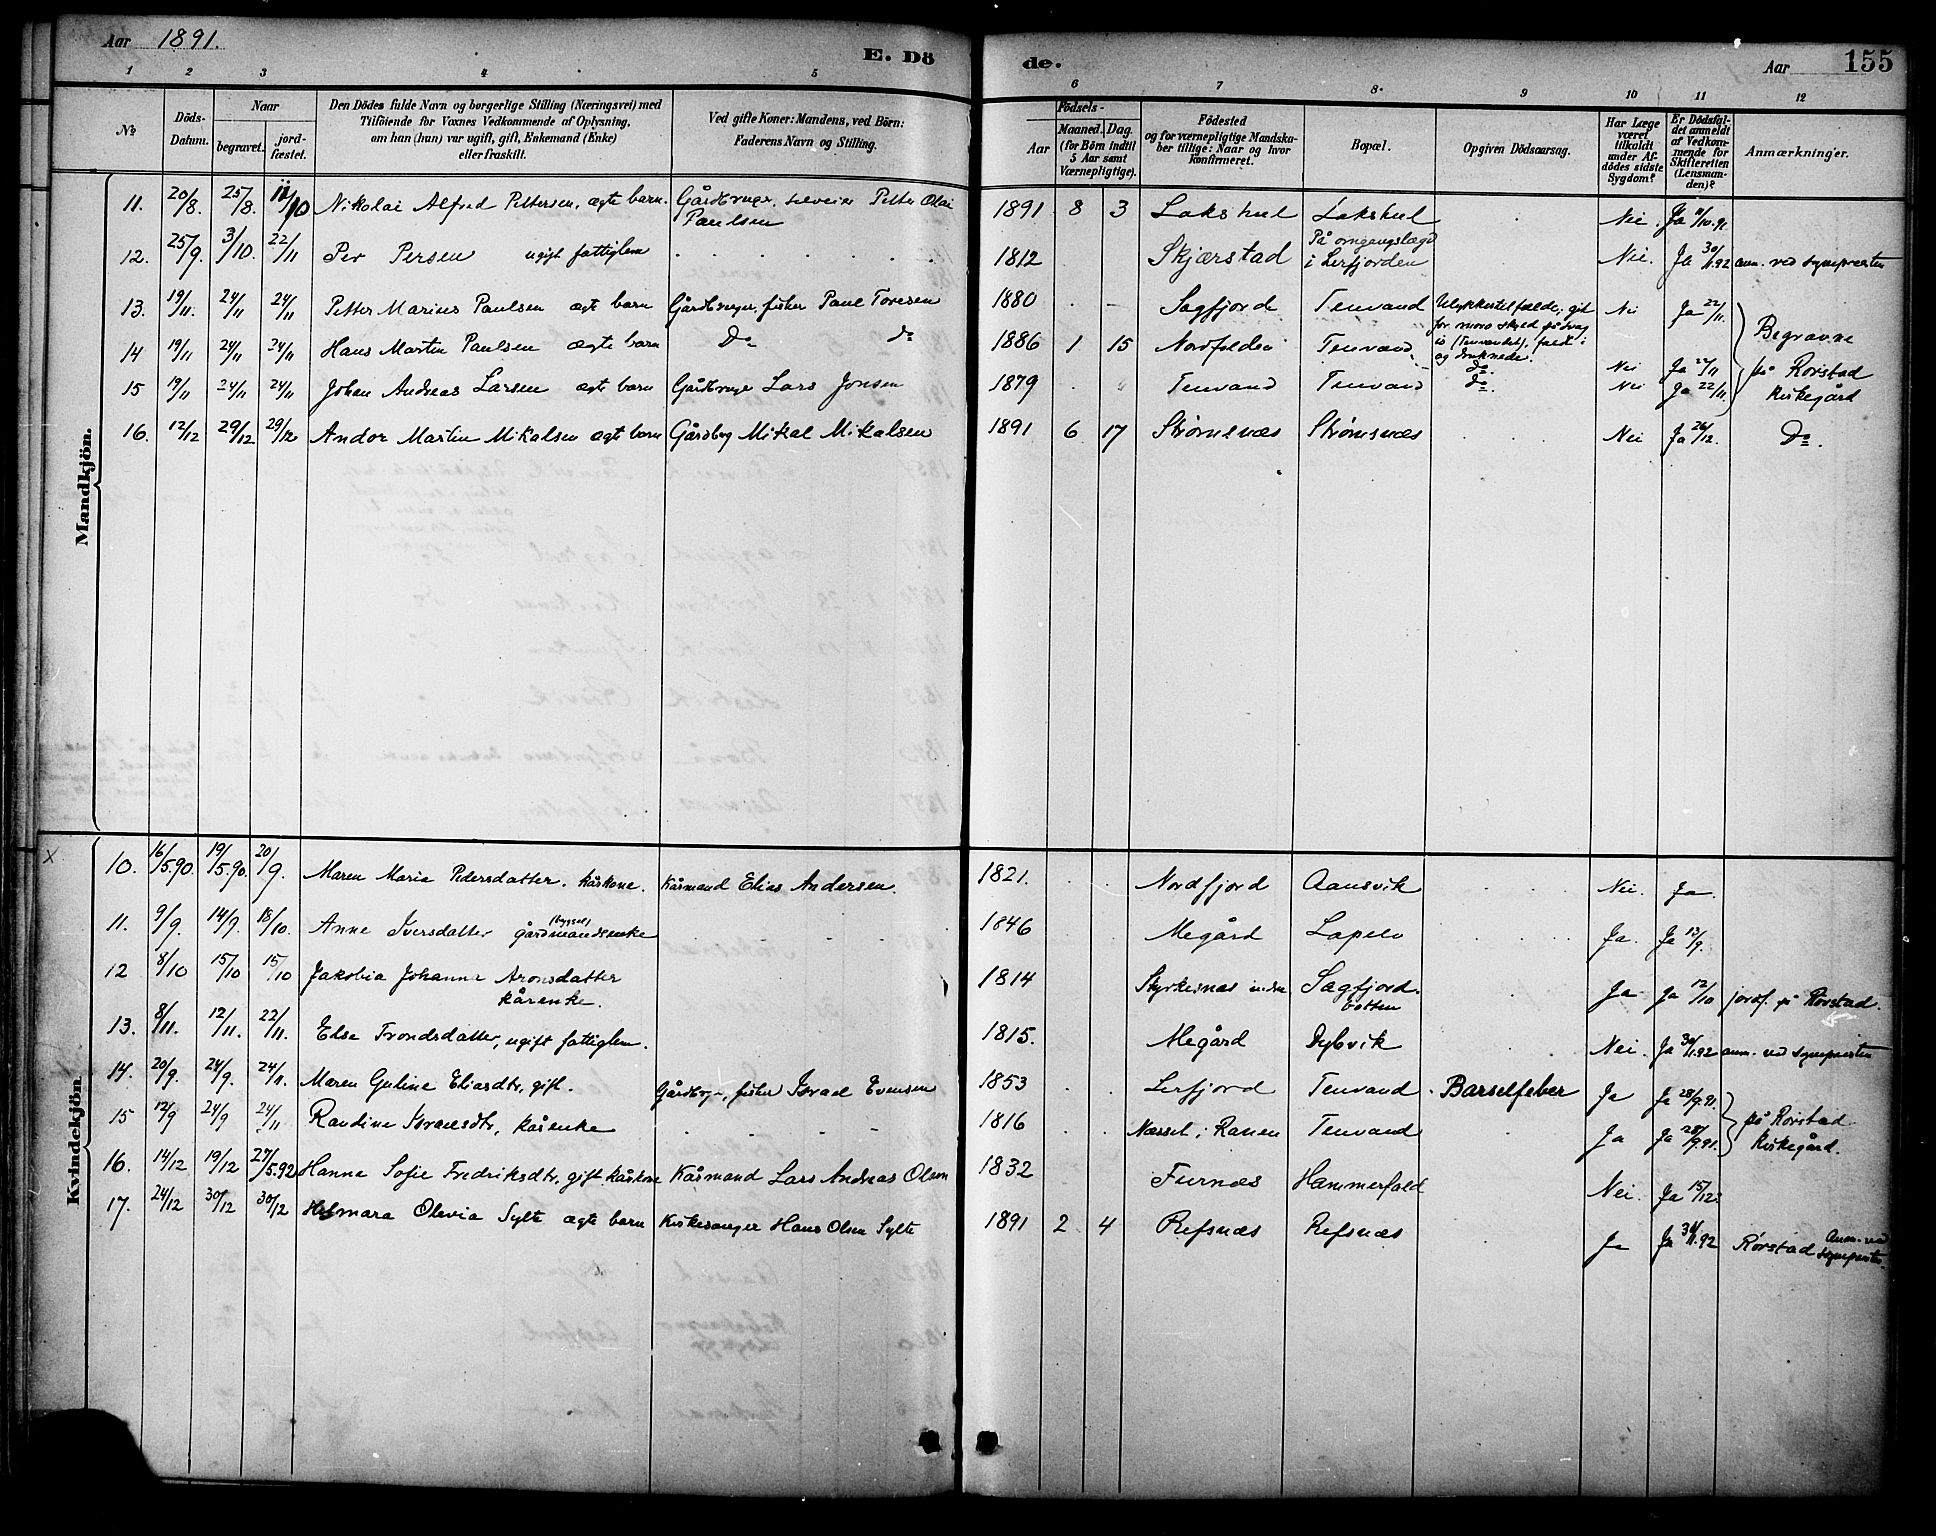 Aar 1891.
E. Dö
de.
Aar
155
1 2 3 4 5
6 7 8 9 10 11 12
No
Döds-Datum.
Naar
begravet.
jord-fæstet.
Den Dödes fulde Navn og borgerlige Stilling (Næringsvei) med
Tilföiende for Voxnes Vedkommende af Oplysning,
om han (hun) var ugift, gift, Enkemand (Enke)
eller fraskilt.
Ved gifte Koner: Mandens, ved Börn:
Faderens Navn og Stilling.
Födsels-
Aar
Maaned. Dag.
(for Börn indtil
5 Aar samt
Værnepligtige).
Födested
og for værnepligtige Mandska-
ber tillige: Naar og hvor
konfirmeret.
Bopæl.
Opgiven Dödsaarsag.
Har Læge
været
tilkaldt
under Af-
dödes sidste
Sygdom?
Er Dödsfal-
det anmeldt
af Vedkom-
mende for
Skifteretten
(Lensman-
den)?
Anmærkninger.
Mandkjön.
11. 20/8. 25/8. 11/10 Nikolai Alfred Pettersen, ægte barn. Gårdbruger, Petter Olai Paulsen 1891 8 3 Lakshul Lakshul Nei. Ja 9/10.91.
12. 25/9. 3/10. 22/11 Per Persen ugift fattiglem 1812 Skjærstad På omgangslægd i Lerfjorden Nei. Ja 30/1.92 anm. ved sognepresten
13. 19/11. 24/11 24/11 Petter Marius Paulsen ægte barn Gårdbruger, fisker Paul Toresen 1880 . - Sagfjord Tenvand Ulykkestilfælde; gik for moro skyld på svag is (Tenvandet), faldt i og druknede. Nei Ja 22/11.
14 19/11 24/11 24/11 Hans Martin Paulsen ægte barn Do do 1886 1 15 Nordfolden Tenvand do Nei Ja 27/11
15 19/11 24/11 24/11 Johan Andreas Larsen ægte barn Gårdbruger Lars Jonsen 1879 . " Tenvand Tenvand do. Nei Ja 22/11.
Begravne
på Rørstad
kirkegård
16. 12/12 29/12 29/12 Andor Martin Mikalsen ægte barn Gårdbrg Mikal Mikalsen 1891 6 17 Strømsnæs Strømsnæs Nei Ja 26/12. Do.
Kvindekjön.
x
10. 16/5.90. 19/5.90. 20/9. Maren Maria Pedersdatter. kårkone. Kårmand Elias Andersen. 1821. Nordfjord Aansvik Nei. Ja.
11. 9/9. 14/9. 18/10. Anne Iversdatter (bygsel) gårdmandsenke 1846 Megård Lapelv Ja. Ja 13/9.
12 8/10 15/10 15/10 Jakobia Johanna Aronsdatter kårenke. 1814 Styrkesnæs indre Sagfjord-botten Ja Ja 12/10 jordf. på Rørstad.
13. 8/11. 12/11. 22/11. Else Trondsdatter, ugift fattiglem. 1815. Megård Dybvik Nei. Ja 30/1.92 anm. ved sognepresten
14. 20/9. 24/9. 24/11. Maren Guline Eliasdtr, gift. Gårdbrgr., fisker Israel Evensen 1853 Lerfjord Tenvand Barselfeber Ja Ja 28/9.91.
15 12/9 24/9 24/11 Randine Israelsdtr, kårenke 1816 Næsset i Ranen Tenvand Ja Ja 28/9.91.
på Rørstad
kirkegård.
16. 14/12 19/12 27/5.92 Hanna Sofie Fredriksdtr, gift kårkone Kårmand Lars Andreas Olsen 1832 Furnæs Hammerfald Nei. Ja 15/12
17. 24/12 30/12 30/12 Helmara Olevia Sylte ægte barn Kirkesanger Hans Olsen Sylte 1891 2 4 Refsnæs Refsnæs Ja Ja 30/1.92 Rørstad Anm. ved sognepresten.